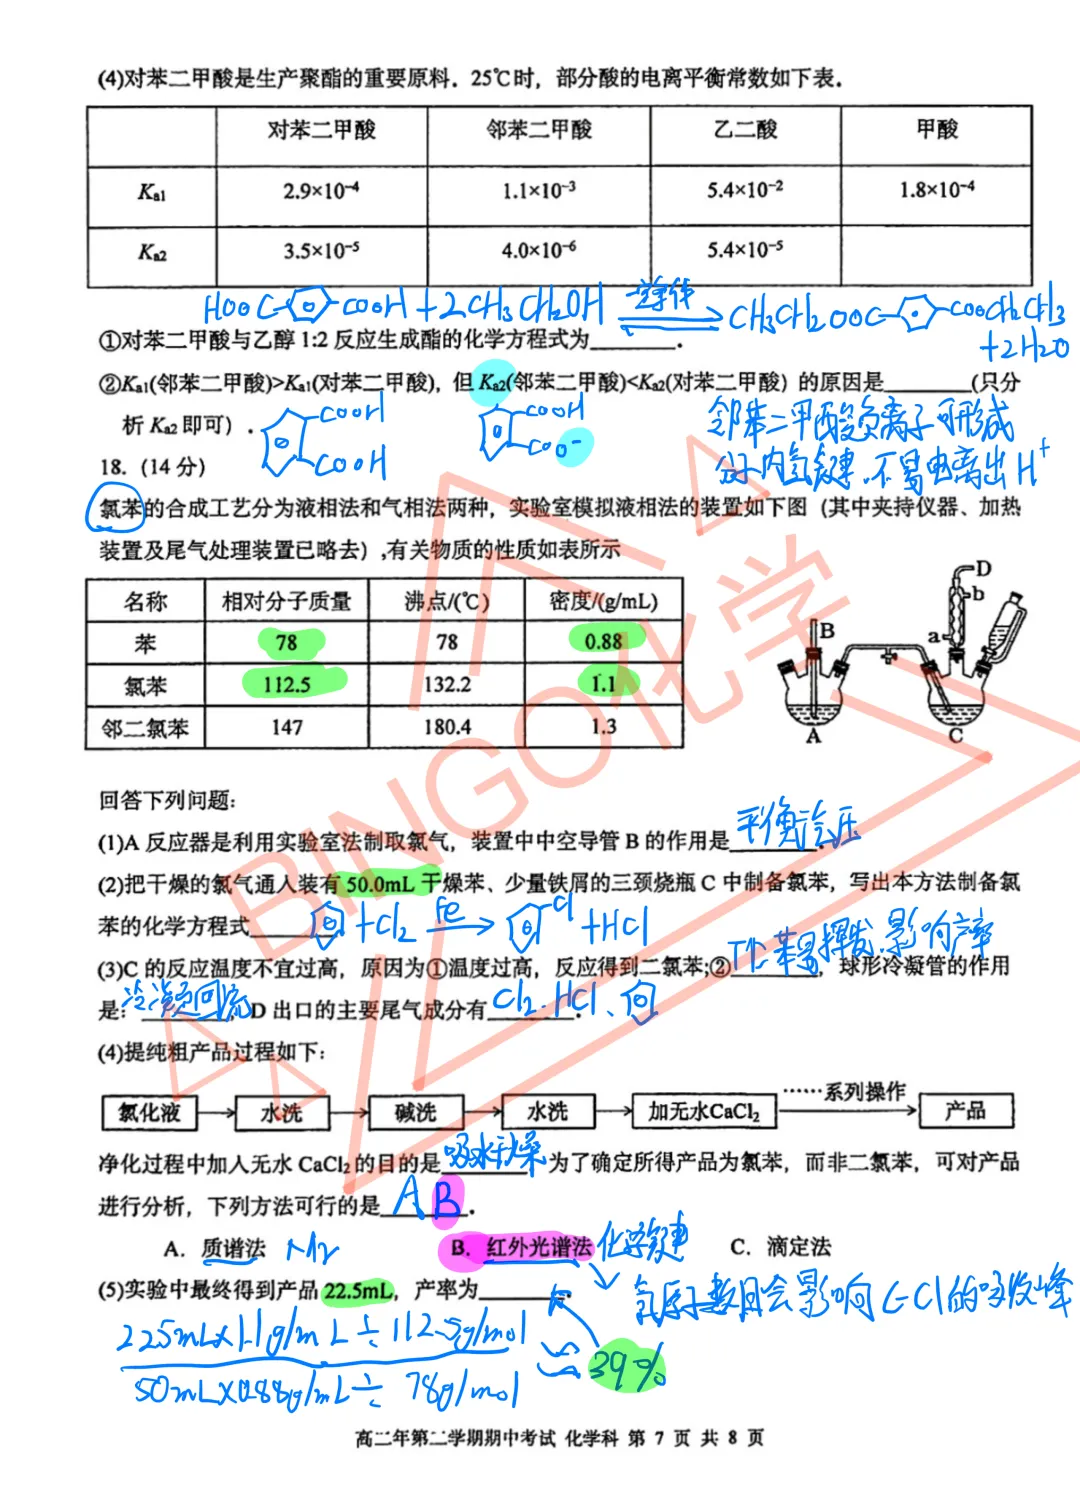 (4)对苯二甲酸是生产聚酯的重要原料．25℃时，部分酸的电离平衡常数如下表．
对苯二甲酸 邻苯二甲酸 乙二酸 甲酸
Ka1 2.9×10⁻⁴ 1.1×10⁻³ 5.4×10⁻² 1.8×10⁻⁴
Ka2 3.5×10⁻⁵ 4.0×10⁻⁶ 5.4×10⁻⁵
HOOC COOH+2CH3CH2OH 浓硫酸 CH3CH2OOC COOCH2CH3
+2H2O
①对苯二甲酸与乙醇 1:2 反应生成酯的化学方程式为________．
②Ka1(邻苯二甲酸)>Ka1(对苯二甲酸)，但 Ka2(邻苯二甲酸)<Ka2(对苯二甲酸）的原因是________(只分
析 Ka2 即可）．
COOH COOH
COOH COO⁻
邻苯二甲酸负离子可形成
分子内氢键、不易电离出H⁺
18.（14 分）
氯苯的合成工艺分为液相法和气相法两种，实验室模拟液相法的装置如下图（其中夹持仪器、加热
装置及尾气处理装置已略去）,有关物质的性质如表所示
名称 相对分子质量 沸点/(℃) 密度/(g/mL)
苯 78 78 0.88
氯苯 112.5 132.2 1.1
邻二氯苯 147 180.4 1.3
D
b
B
a
A
C
BINGO化学
回答下列问题：
(1)A 反应器是利用实验室法制取氯气，装置中中空导管 B 的作用是________．
平衡气压
(2)把干燥的氯气通入装有 50.0mL 干燥苯、少量铁屑的三颈烧瓶 C 中制备氯苯，写出本方法制备氯
苯的化学方程式________
+Cl2 Fe Cl +HCl
(3)C 的反应温度不宜过高，原因为①温度过高，反应得到二氯苯;②________，球形冷凝管的作用
苯易挥发、影响产率
是：________，D 出口的主要尾气成分有________．
冷凝回流
Cl2、HCl、
(4)提纯粗产品过程如下：
氯化液 水洗 碱洗 水洗 加无水CaCl₂ ……系列操作 产品
净化过程中加入无水 CaCl₂ 的目的是________．为了确定所得产品为氯苯，而非二氯苯，可对产品
吸水干燥
进行分析，下列方法可行的是________．
AB
A．质谱法 Mr B．红外光谱法 化学键 C．滴定法
氢原子数目会影响C-Cl的吸收峰
(5)实验中最终得到产品 22.5mL，产率为________．
22.5mL×1.1g/mL÷112.5g/mol
50mL×0.88g/mL÷78g/mol
≈39%
高二年第二学期期中考试 化学科 第 7 页 共 8 页